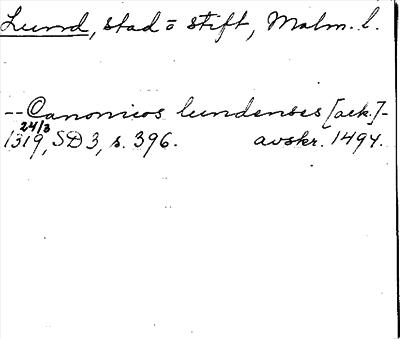 Lund, stad o stift, Malm. l.
-- Canonicos lundenses [ack.] -
24/3
1319, SD 3, s. 396. avskr. 1494.